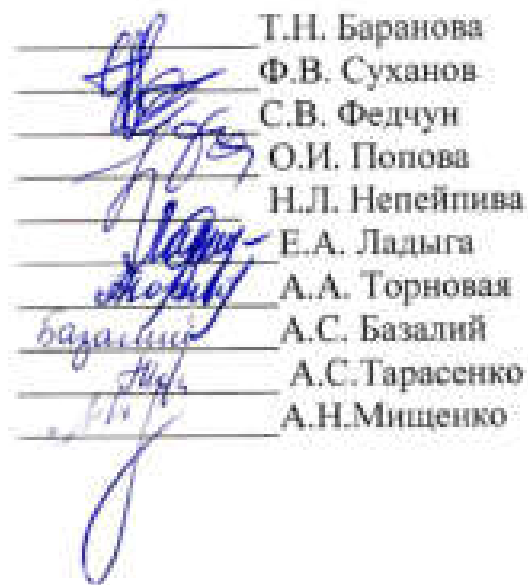 Т.Н. Баранова
Ф.В. Суханов
С.В. Федчун
О.И. Попова
Н.Л. Непейпива
Е.А. Ладыга
А.А. Торновая
Базалий А.С. Базалий
А.С.Тарасенко
А.Н.Мищенко